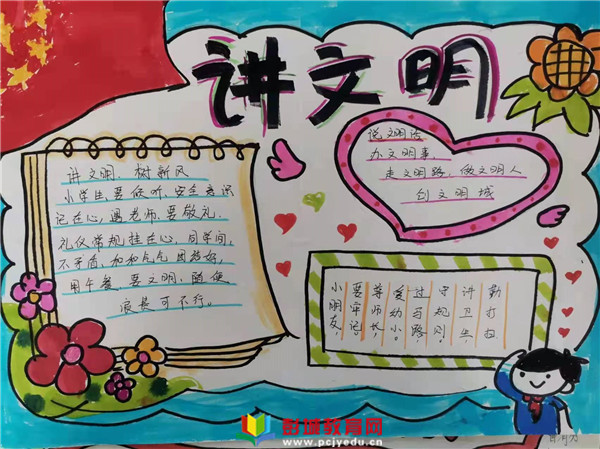 讲文明
讲文明,树新风
小学生,要倾听,安全意识
记在心,遇老师,要敬礼.
礼仪常规挂在心,同学间,
不矛盾,和和气气团结好,
用午餐,要文明,随便
浪费可不行。
说文明话
办文明事
走文明路,做文明人
创文明城
小朋友,
要牢记,
尊师长,
爱幼小。
过马路,
守规则。
讲卫生,
勤打扫
彭城教育网
www.pcjyedu.cn